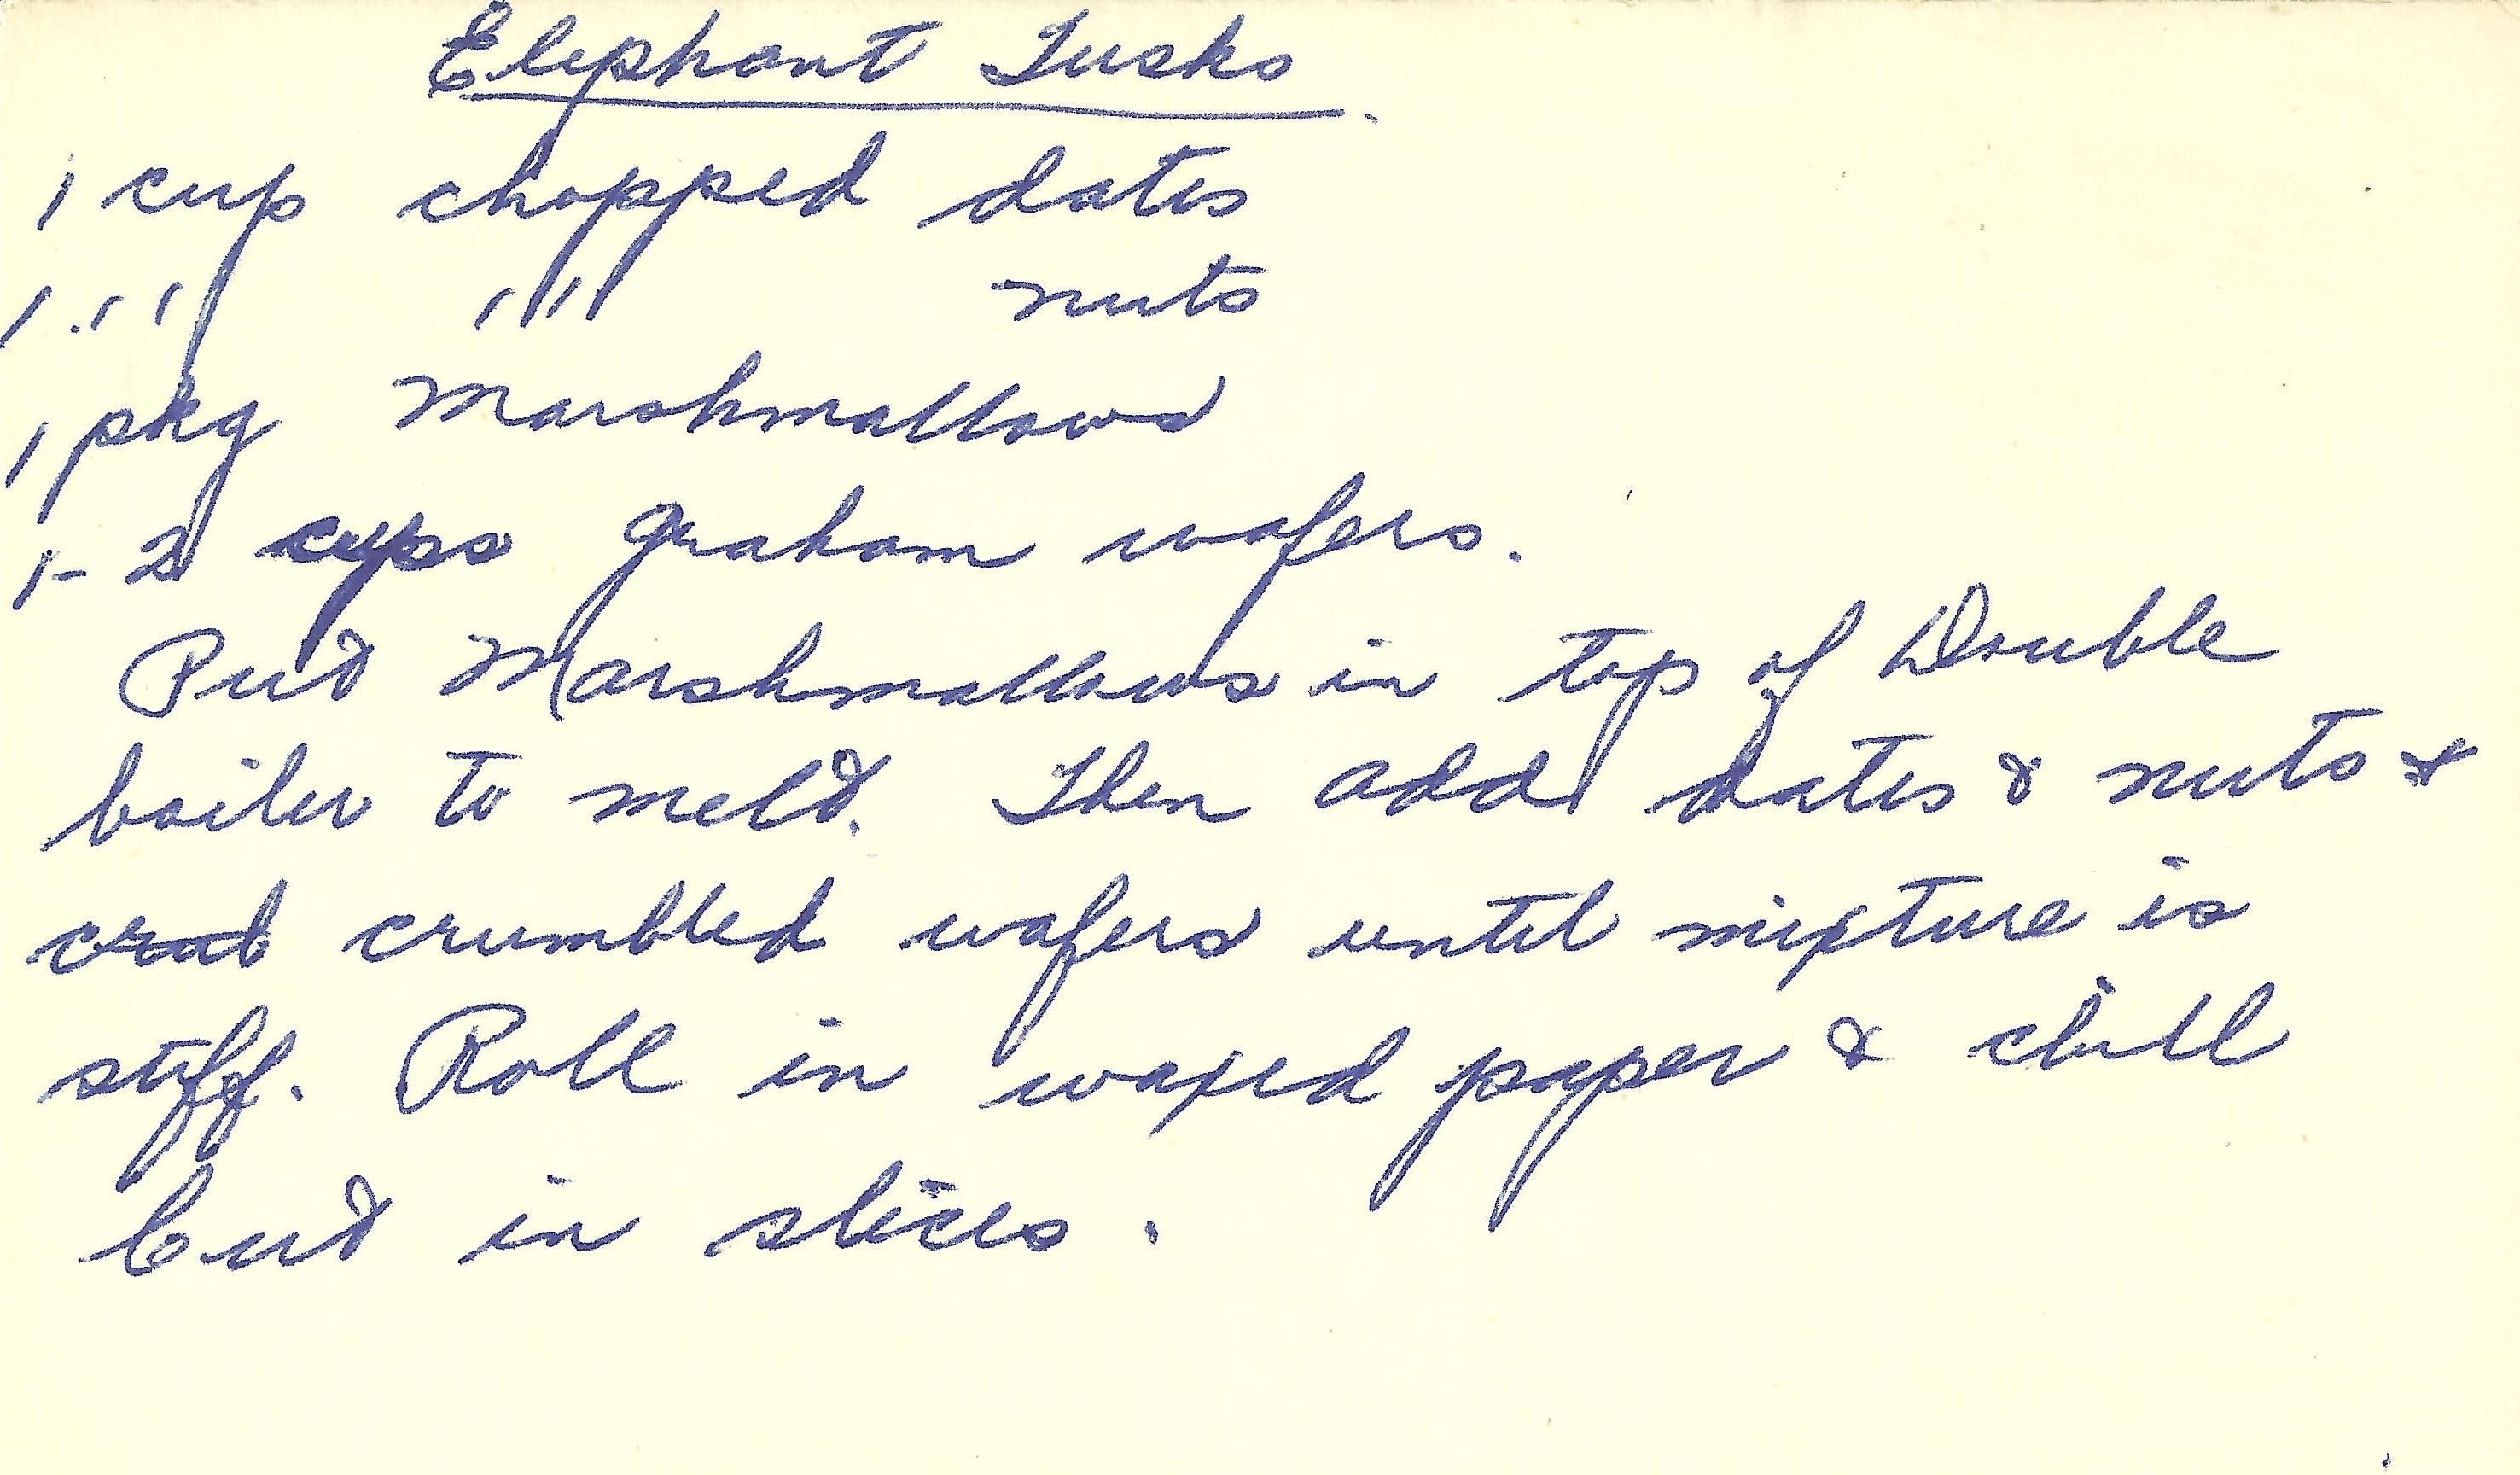 Elephant Tusks.
1 cup chopped dates
1 " " nuts
1 pkg Marshmallows
1-2 cups graham wafers.
Put Marshmallows in top of Double
boiler to melt. Then add dates & nuts &
crub crumbled wafers until mixture is
stiff. Roll in waxed paper & chill
Cut in slices.